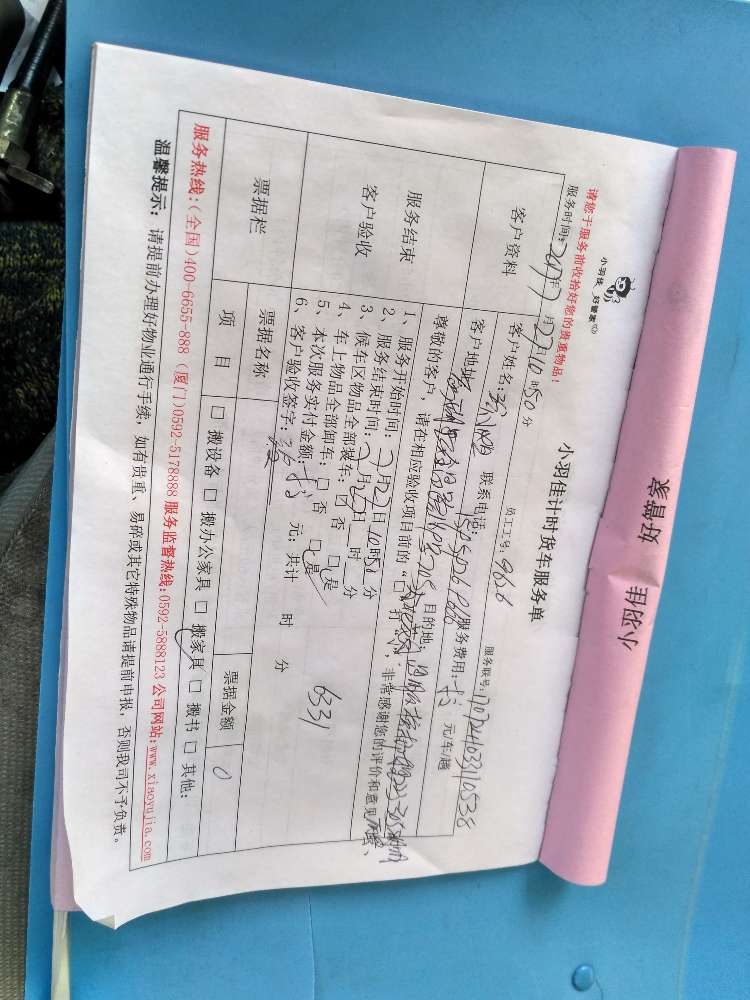 小羽佳 好管家
小羽佳 好管家
小羽佳计时货车服务单
请您于服务前收拾好您的贵重物品!
服务时间: 年7月22日10时50分 员工工号: 9656 服务联号:
客户资料
客户姓名: 联系电话: 服务费用: 元/车/趟
客户地址: 目的地:
尊敬的客户,请在相应验收项目前的“□”打“√”,非常感谢您的评价和意见
服务结束
客户验收
1、服务开始时间:7月22日10时51分
2、服务结束时间:7月22日 时 分
3、候车区物品全部装车:□否 □是
4、车上物品全部卸车:□否 □是
5、本次服务实付金额: 元;共计 时 分
6、客户验收签字: 6331
票据栏
票据名称 票据金额 0
项目 □搬设备 □搬办公家具 □搬家具 □搬书 □其他:
服务热线:(全国)400-6655-888 (厦门)0592-5178888 服务监督热线:0592-5888123 公司网站:www.xiaoyujia.com
温馨提示: 请提前办理好物业通行手续,如有贵重、易碎或其它特殊物品请提前申报,否则我司不予负责。